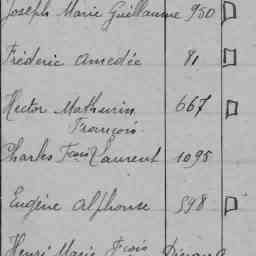 Joseph Marie Guillaume 950
Fréderic Amedée 81
Hector Mathurin 667
François
Charles Fois Laurent 1095
Eugène Alphonse 598
Henri Marie Fçois